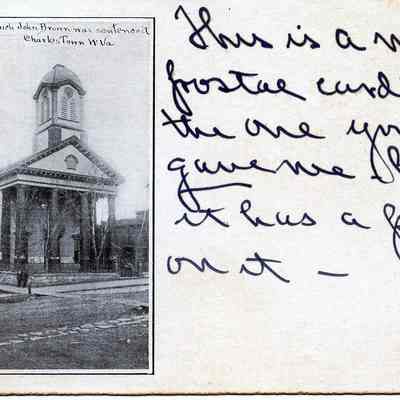 John Brown was sentenced
Charles Town W.Va
This is a
postal card
the one you
gave me
it has a
on it —